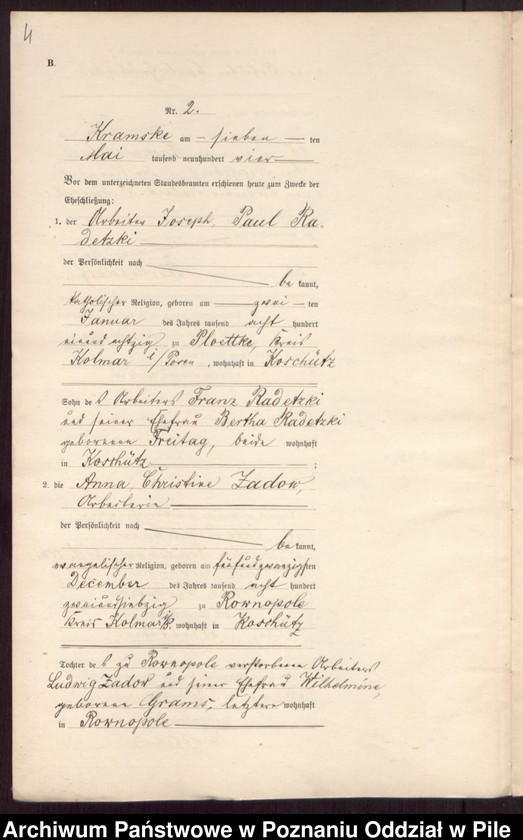 4
B.
Nr. 2.
Kramske am sieben ten
Mai tausend neunhundert vier
Vor dem unterzeichneten Standesbeamten erschienen heute zum Zwecke der
Eheschließung:
1. der Arbeiter Joseph, Paul Ra-
detzki
der Persönlichkeit nach
be kannt,
katholischer Religion, geboren am zwei ten
Januar des Jahres tausend acht hundert
einundachtzig zu Ploettke, Kreis
Kolmar i/Posen, wohnhaft in Koschütz
Sohn des Arbeiters Franz Radetzki
und seiner Ehefrau Bertha Radetzki
geborenen Freitag, beide wohnhaft
in Koschütz ;
2. die Anna, Christine Zadow,
Arbeiterin
der Persönlichkeit nach
be kannt,
evangelischer Religion, geboren am fünfundzwanzigsten
December des Jahres tausend acht hundert
zweiundsiebzig zu Rownopole
Kreis Kolmar i/P. wohnhaft in Koschütz
Tochter des zu Rownopole verstorbenen Arbeiters
Ludwig Zadow und seiner Ehefrau Wilhelmine,
geborenen Grams, letztere wohnhaft
in Rownopole
Archiwum Państwowe w Poznaniu Oddział w Pile